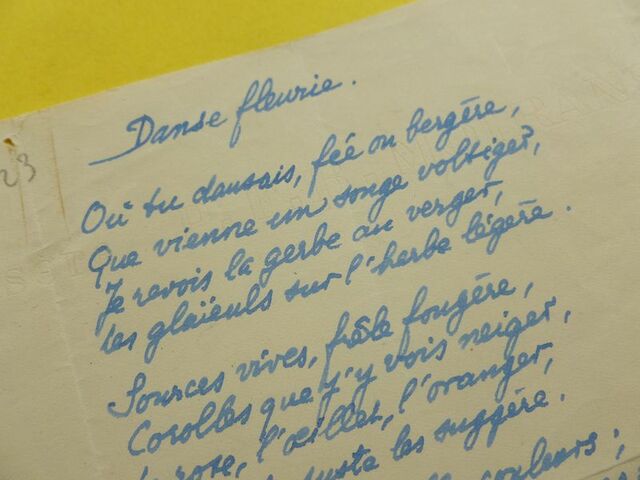 23
Danse fleurie.
Où tu dansais, fée ou bergère,
Que vienne un songe voltiger,
Je revois la gerbe au verger,
Les glaïeuls sur l'herbe légère.
Sources vives, frêle fougère,
Corolles que j'y vois neiger,
rose, l'œillet, l'oranger,
les suggère.
couleurs ;